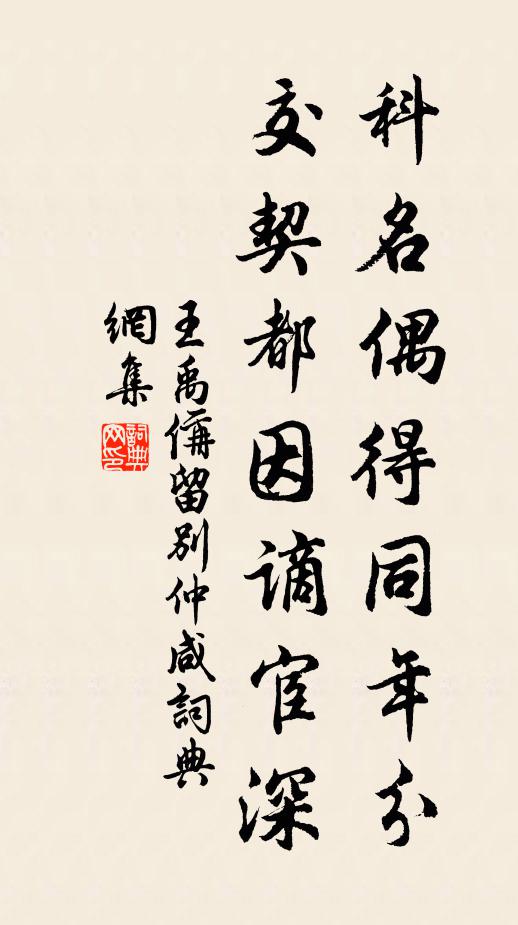 科名偶得同年分
交契都因謫宦深
王禹偁留别仲咸詞典
網集
詞典網印